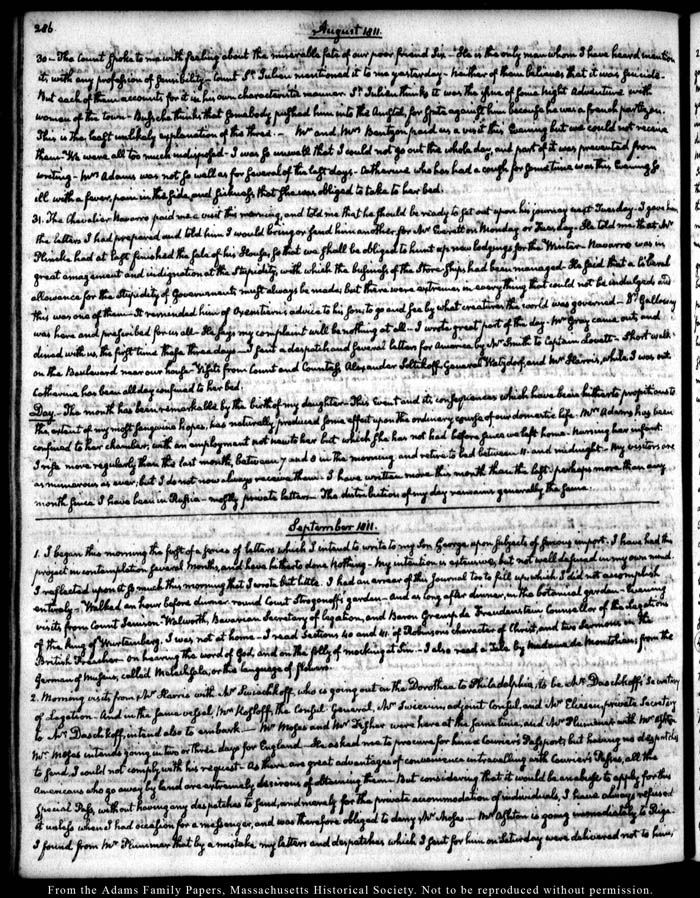 286.
August 1811.
30 - The Count spoke to me with feeling about the miserable fate of our poor friend Six - He is the only man whom I have heard mention
it, with any profession of sensibility - Count St. Julien mentioned it to me yesterday - Neither of them believes that it was suicide -
But each of them accounts for it in his own characteristic manner. St. Julien thinks it was the issue of some Night Adventure with
women of the town - Bussche thinks that somebody pushed him into the Canal, for spite against him because he was a french partizan.
This is the least unlikely explanation of the three. - Mr and Mrs Bentzon paid us a visit this Evening but we could not receive
them - We were all too much indisposed - I was so unwell that I could not go out the whole day, and part of it was prevented from
writing - Mrs Adams was not so well as for several of the last days - Catherine who has had a cough for some time was this Evening so
ill with a fever, pain in the side, and sickness, that she was obliged to take to her bed.
31. The Chevalier Navarro paid me a visit this morning, and told me that he should be ready to set out upon his journey next Tuesday - I gave him
the letters I had prepared and told him I would bring or send him another for Mr Everett on Monday or Tuesday. He told me that Mr
Plincke had at last finished the sale of his House, so that we shall be obliged to hunt up new lodgings for the Winter - Navarro was in
great amazement and indignation at the Stupidity with which the business of the Store Ships had been managed. He said that a liberal
allowance for the stupidity of Governments must always be made; but there were extremes in every thing that could not be indulged and
this was one of them - It reminded him of Oxenstiern's advice to his son, to go and see by what creatures the world was governed - Dr Galloway
was here and prescribed for us all - He says my complaint will be nothing at all - I wrote great part of the day. Mr Gray came out, and
dined with us, the first time these three days - I sent a despatch and several letters for America by Mr Smith to Captain Lovett - Short walk
on the Boulevard near our house - Visits from Count and Countess Alexander Soltikoff, General Watzdorf, and Mr Harris, while I was out.
Catherine has been all day confined to her bed.
Day - The month has been remarkable by the birth of my daughter - This Event and its consequences which have been hitherto propitious to
the extent of my most sanguine hopes, has naturally produced some effect upon the ordinary course of our domestic life. Mrs Adams has been
confined to her chamber, with an employment not new to her but which she has not had before since we left home - Nursing her infant.
I rise more regularly than the last month, between 7 and 8 in the morning, and retire to bed between 11. and midnight. My visitors are
as numerous as ever; but I do not now always receive them. I have written more this month than the last; perhaps more than any
month since I have been in Russia - mostly private letters - The distribution of my day remains generally the same.
September 1811.
1. I began this morning the first of a series of letters which I intend to write to my Son George upon subjects of serious import. I have had this
project in contemplation several Months, and have hitherto done Nothing. My intention is extensive, but not well defined in my own mind.
I reflected upon it so much this morning that I wrote but little. I had an arrear of this Journal too to fill up which I did not accomplish
entirely - Walked an hour before dinner round Count Strogonoff's garden - And as long after dinner, in the botanical garden - Evening
visits from Count Jennison-Walworth, Bavarian Secretary of legation, and Baron Gremp de Freudenstein Counsellor of the legation
of the King of Wurtemberg. I was not at home - I read Sections 40 and 41 of Robinson's character of Christ, and two Sermons in the
British Preacher - on hearing the word of God, and on the folly of mocking at Sin - I also read a Tale by Madame de Montolieu, from the
German of Musæus, called Melechsala, or the language of flowers.
2. Morning visit from Mr Harris with Mr Swiatchkoff, who is going out in the Dorothea to Philadelphia, to be Mr Daschkoff's Secretary
of legation - And in the same vessel, Mr Kosloff, the Consul General, Mr Swinin, adjoint Consul, and Mr Eliesen, private Secretary
to Mr Daschkoff, intend also to embark - Mr Moses and Mr Fisher were here at the same time, and Mr Plummer with Mr Ashton
Mr Moses intends going in two or three days for England - He asked me to procure for him a Couriers Passport, but having no despatches
to send, I could not comply with his request - As there are great advantages of convenience in travelling with Couriers Passes, all the
Americans who go away by land are extremely desirous of obtaining them - But considering that it would be an abuse to apply for this
special Pass, without having any despatches to send, and merely for the private accommodation of individuals, I have always refused
it unless when I had occasion for a messenger, and was therefore obliged to deny Mr Moses - Mr Ashton is going immediately to Riga.
I found from Mr Plummer that by a mistake my letters and despatches which I sent for him on Saturday were delivered not to him,
From the Adams Family Papers, Massachusetts Historical Society. Not to be reproduced without permission.